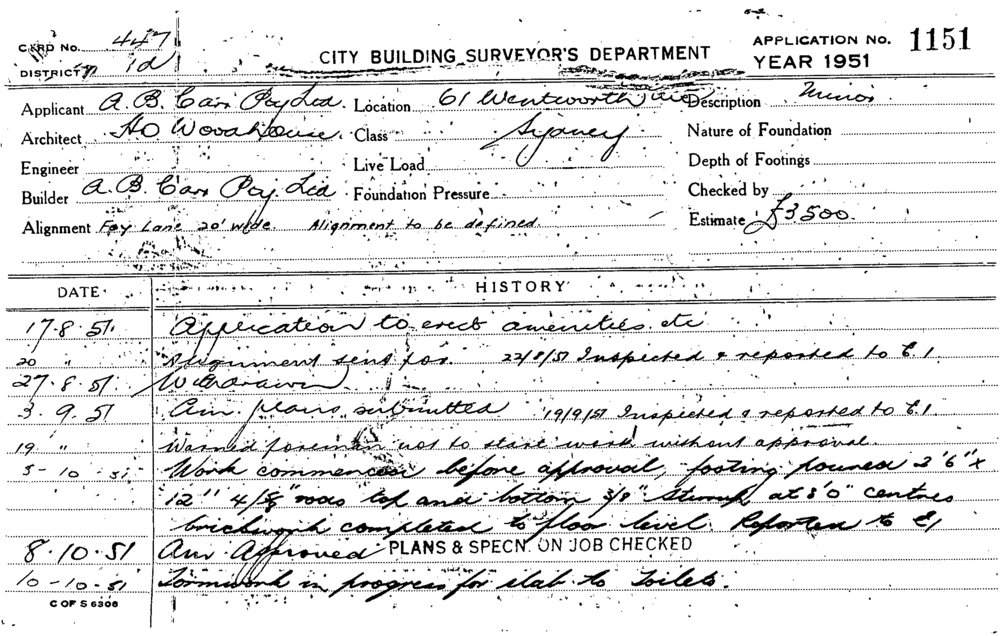 CARD No. 447
DISTRICT 1d
CITY BUILDING SURVEYOR'S DEPARTMENT
APPLICATION No. 1151
YEAR 1951
Applicant A. B. Carr Pty Ltd. Location 61 Wentworth Ave Description Minor
Architect H O Woodhouse. Class Sydney Nature of Foundation
Engineer Live Load Depth of Footings
Builder A. B. Carr Pty Ltd Foundation Pressure Checked by
Alignment Foy Lane 20' wide Alignment to be defined. Estimate £3500
DATE HISTORY
17.8.51 Application to erect amenities etc
20 " Alignment sent for. 22/8/51 Inspected & reported to C.I
27.8.51 Withdrawn
3.9.51 Am. plans submitted 19/9/51 Inspected & reported to C.I
19 " Warned foreman not to start work without approval.
5-10-51 Work commenced before approval, footing poured 2'6" x
12" 4/ " rods top and bottom 3/8" Stirrup at 3'0" centres
brickwork completed to floor level. Reported to
8.10.51 Am Approved PLANS & SPECN. ON JOB CHECKED
10-10-51 Formwork in progress for slab to Toilets.
C OF S 6306